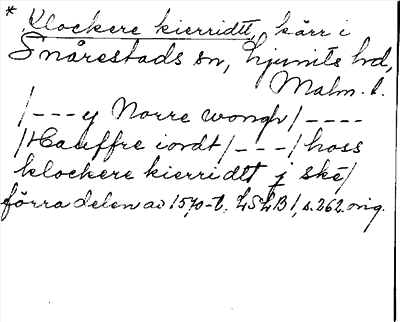 * Klockere kierridtt, kärr i
Snårestads sn, Ljunits hd,
Malm. l.
/---y Norre wongh/----
/Hauffre iordt/---/hoss
klockere kierridtt j ske/
förra delen av 1570-t. LSLB 1, s. 262 orig.